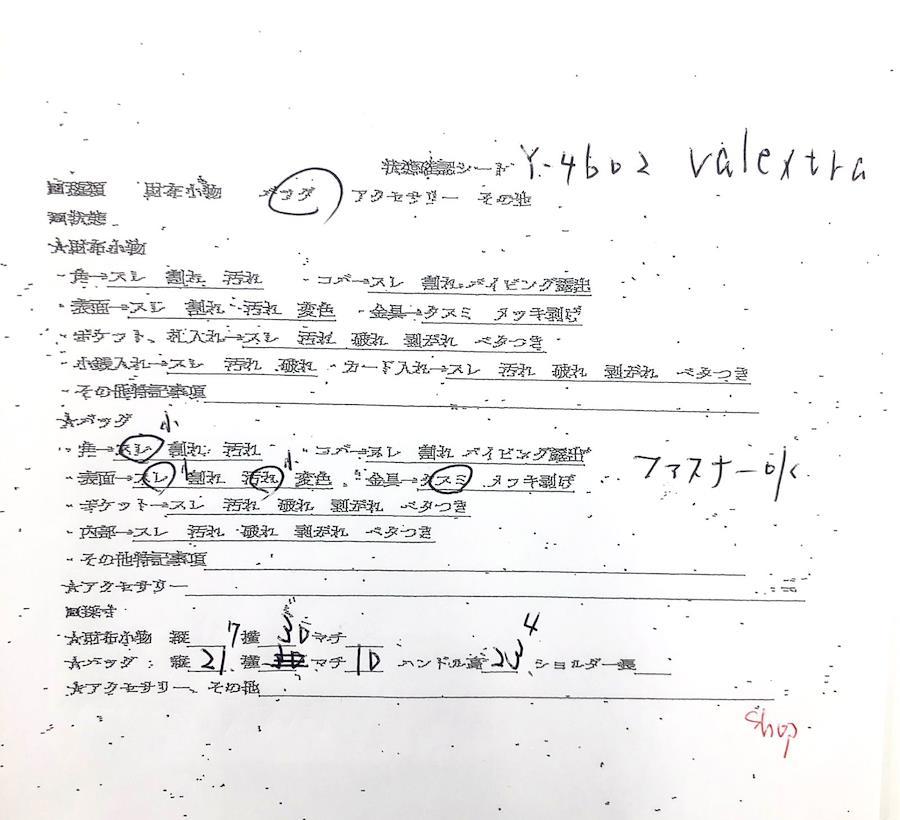 状態確認シート Y-4602 Valextra
■種類 財布小物 バッグ アクセサリー その他
■状態
★財布小物
・角→スレ 割れ 汚れ ・コバ→スレ 割れ パイピング露出
・表面→スレ 割れ 汚れ 変色 ・金具→クスミ メッキ剥げ
・ポケット、札入れ→スレ 汚れ 破れ 剥がれ ベタつき
・小銭入れ→スレ 汚れ 破れ ・カード入れ→スレ 汚れ 破れ 剥がれ ベタつき
・その他特記事項
★バッグ 小
・角→スレ 割れ 汚れ ・コバ→スレ 割れ パイピング露出
・表面→スレ 小 割れ 汚れ 小 変色 ・金具→クスミ メッキ剥げ ファスナーok
・ポケット→スレ 汚れ 破れ 剥がれ ベタつき
・内部→スレ 汚れ 破れ 剥がれ ベタつき
・その他特記事項
★アクセサリー
■採寸
★財布小物 縦 横 30 マチ
★バッグ:縦 21 横 マチ 10 ハンドル高 ショルダー長
★アクセサリー、その他
shop